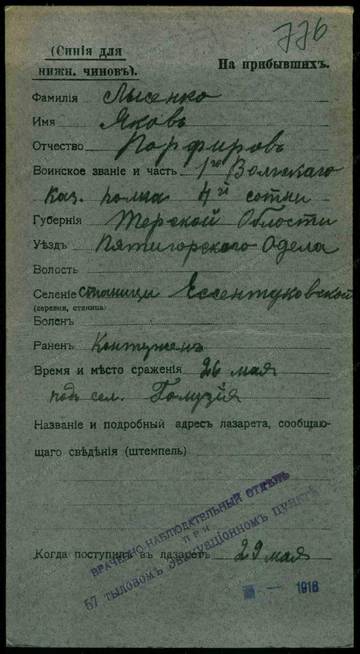 776
(Синія для
нижн. чиновъ).
На прибывшихъ.
Фамилія Лысенко
Имя Яковъ
Отчество Порфировъ
Воинское званіе и часть 1го Волжскаго
Каз. полка 4й сотни
Губернія Терской Области
Уѣздъ Пятигорского Одела
Волость
Селеніе станици Ессентуковской
(деревня, станица)
Боленъ
Раненъ Контуженъ
Время и мѣсто сраженія 26 мая
подъ сел.
Названіе и подробный адресъ лазарета, сообщаю-
щаго свѣдѣнія (штемпель)
ВРАЧЕБНО-НАБЛЮДАТЕЛЬНЫЙ ОТДѢЛЪ
ПРИ
57 ТЫЛОВОМЪ ЭВАКУАЦІОННОМЪ ПУНКТѢ
Когда поступилъ въ лазаретъ 29 мая
1916